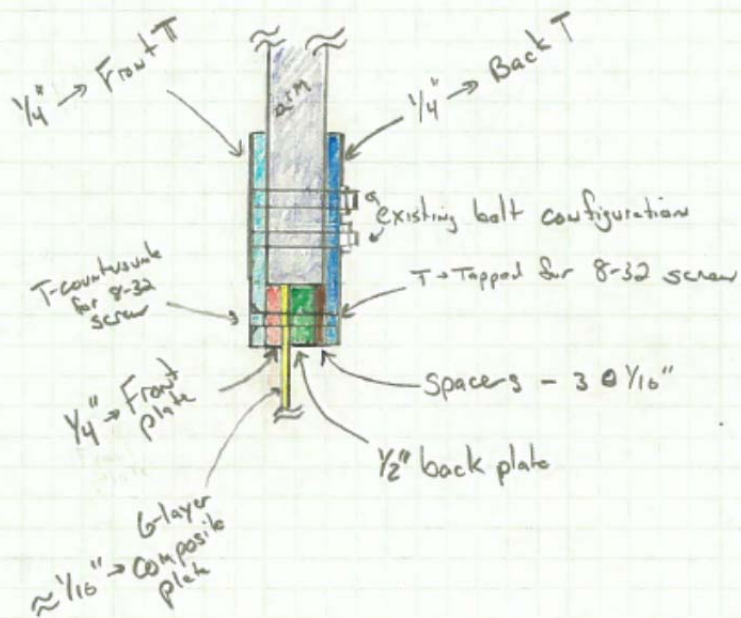 1/4" → Front T
1/4" → Back T
arm
existing bolt configuration
T-countersunk
for 8-32
screw
T → Tapped for 8-32 screw
1/4" → Front
plate
Spacers - 3 @ 1/16"
1/2" back plate
6-layer
≈ 1/16" → composite
plate